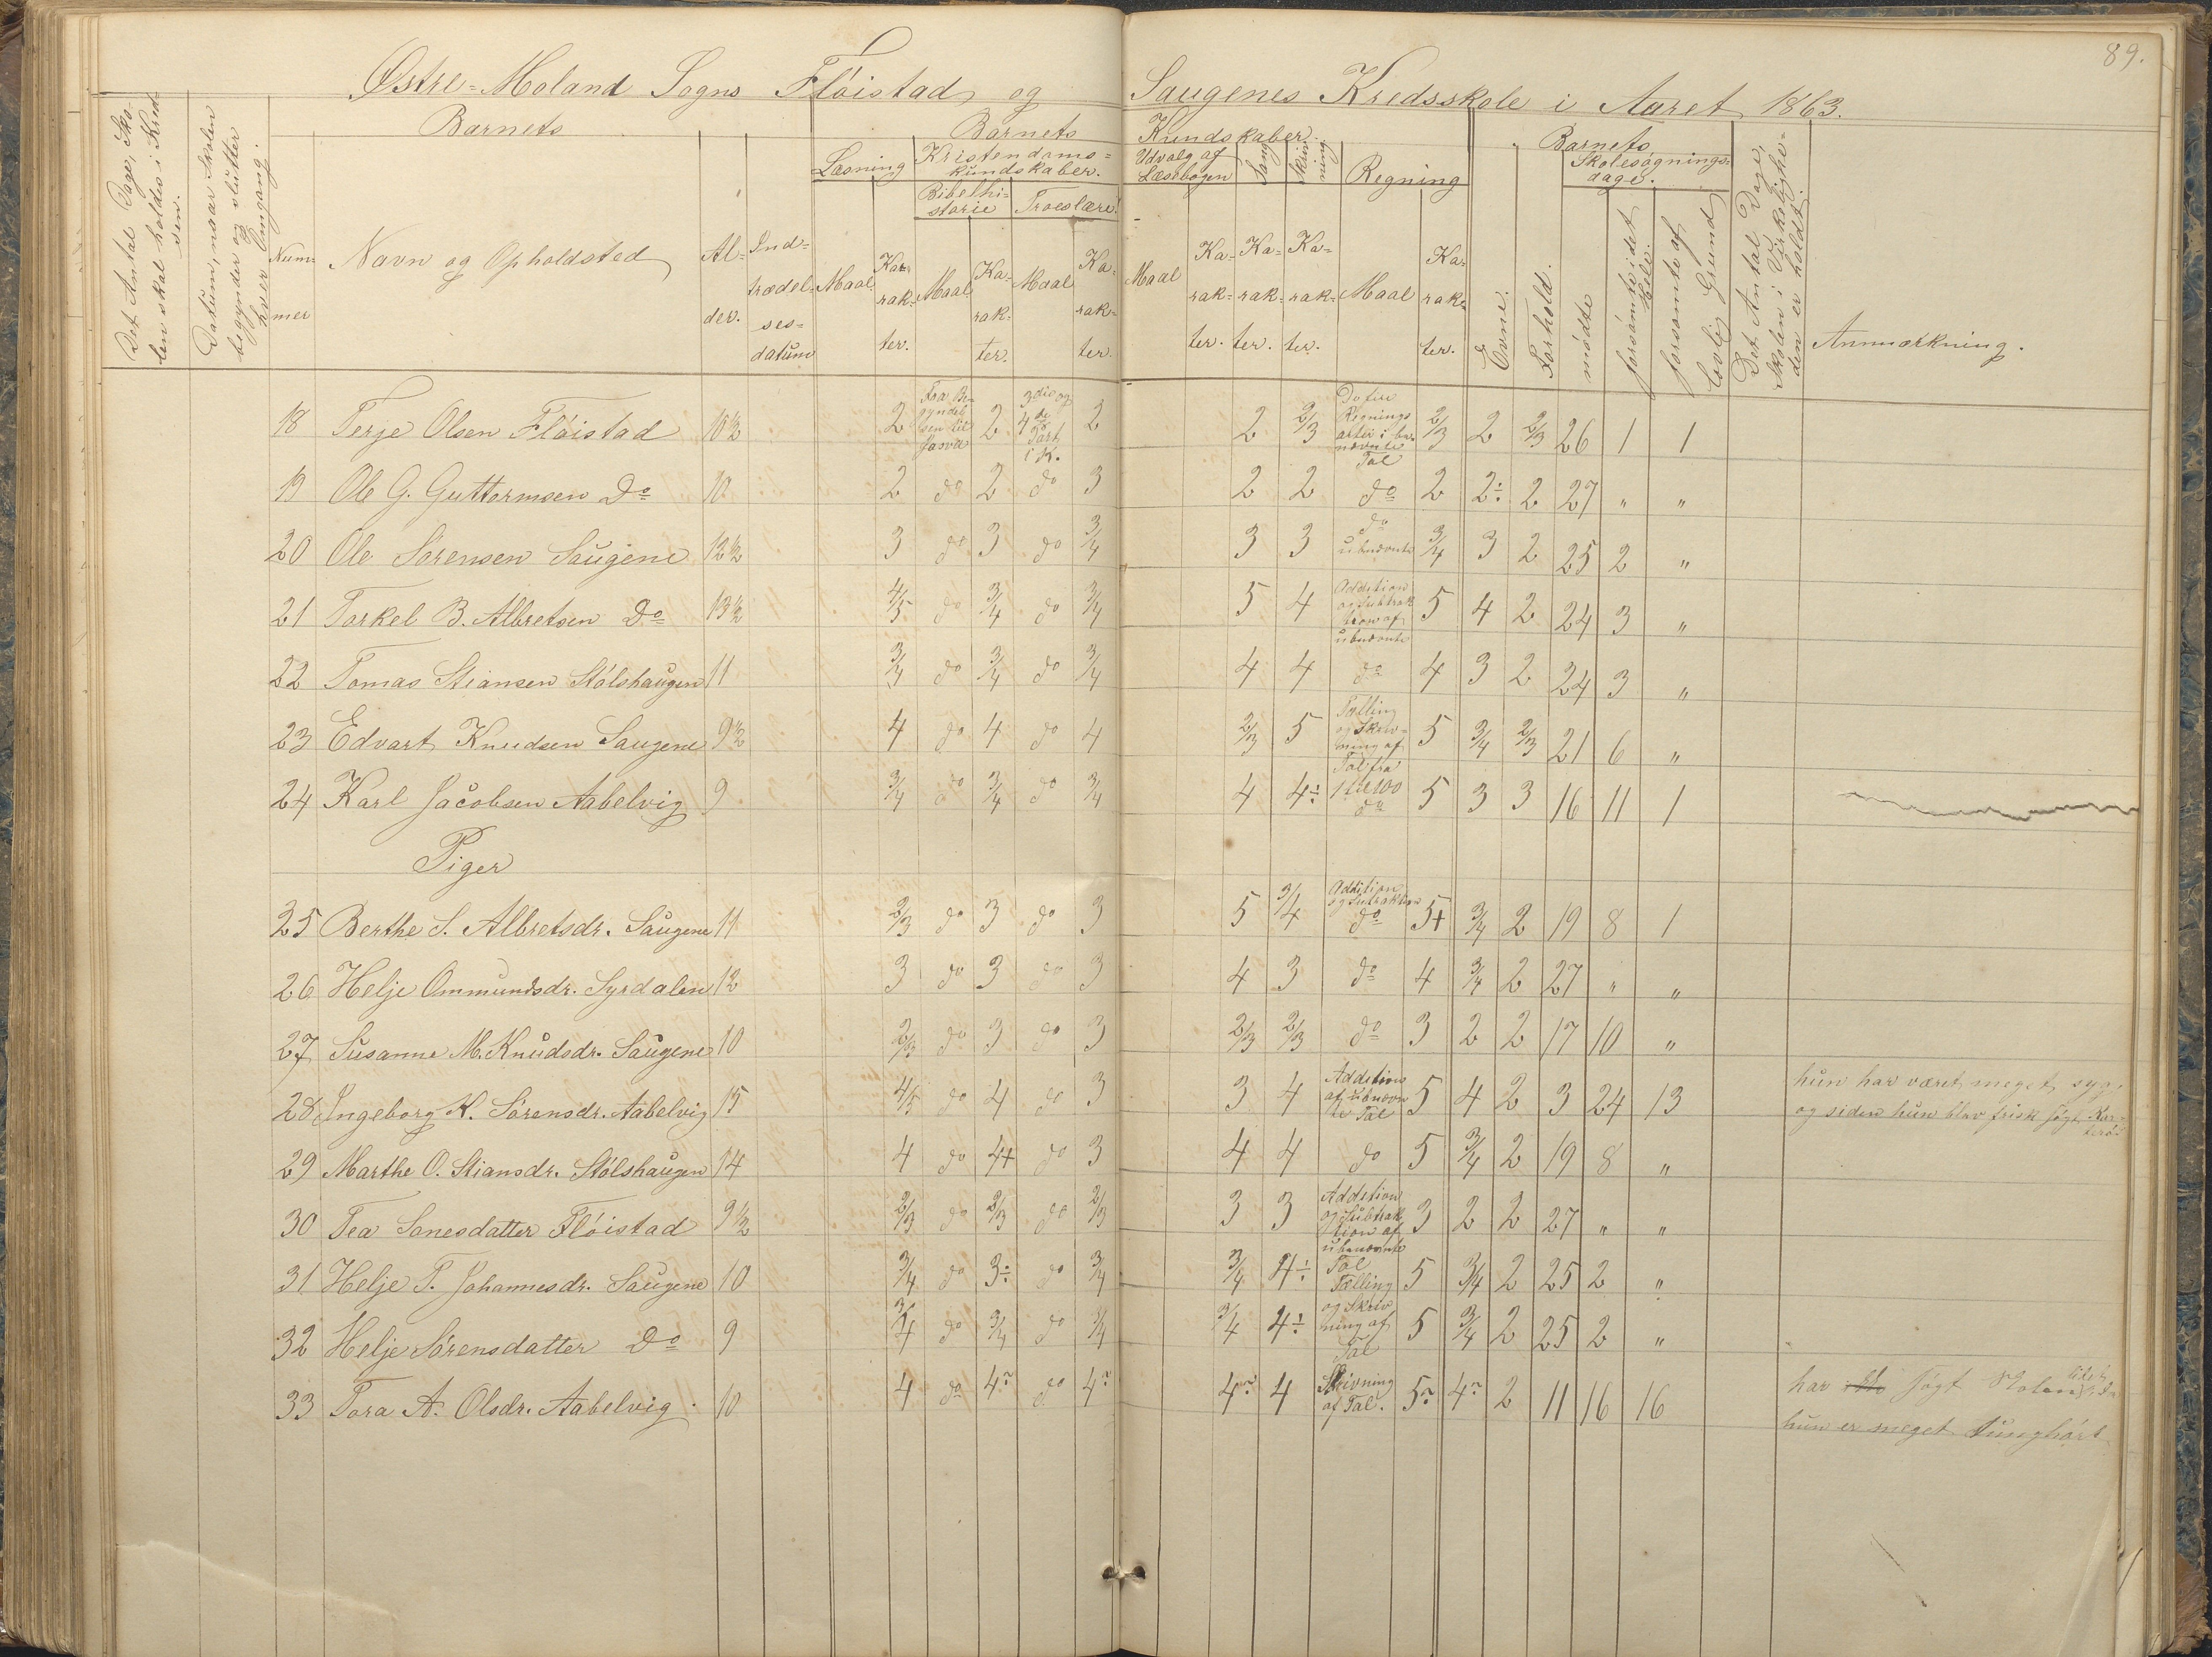 89.
Østre-Moland Sogns Flöistad og Saugenes Kredsskole i Aaret 1863.
Det Antal Dage, Skolen skal holdes i Kredsen.
Datum, naar Skolen begynder og slutter hver Omgang.
Barnets
Nummer
Navn og Opholdsted
Alder.
Indtrædelsesdatum
Barnets Kundskaber.
Læsning
Maal
Karakter.
Kristendomskundskaber.
Bibelhistorie
Maal
Karakter.
Troeslære.
Maal
Karakter.
Udvalg af Læsebogen
Maal
Karakter.
Sang
Karakter.
Skrivning
Karakter.
Regning
Maal
Karakter.
Barnets
Evne.
Forhold.
Skolesøgningsdage.
mödte
forsömte i det Hele.
forsömte af lovlig Grund
Det Antal Dage, Skolen i Virkeligheden er holdt.
Anmærkning.
18 Terje Olsen Flöistad 10½ 2 Fra Begyndelsen til 2 3die og 4de Part i K. 2 2 2/3 De fire Regningsarter i benævnte Tal 2/3 2 2/3 26 1 1
19 Ole G. Guttormsen Do 10 2 do 2 do 3 2 2 do 2 2÷ 2 27 " "
20 Ole Sörensen Saugene 12½ 3 do 3 do 3/4 3 3 do ubnævnte 3/4 3 2 25 2 "
21 Torkel B. Albretsen Do 13½ 4/5 do 3/4 do 3/4 5 4 Addition og Subtraktion af ubnævnte 5 4 2 24 3 "
22 Tomas Stiansen Stölshaugen 11 3/4 do 3/4 do 3/4 4 4 do 4 3 2 24 3 "
23 Edvart Knudsen Saugene 9½ 4 do 4 do 4 2/3 5 Tælling og Skrivning af Tal fra 1 til 100 5 3/4 2/3 21 6 "
24 Karl Jacobsen Aabelvig 9 3/4 do 3/4 do 3/4 4 4÷ do 5 3 3 16 11 1
Piger
25 Berthe S. Albretsdr. Saugene 11 2/3 do 3 do 3 5 3/4 Addition og Subtraktion do 5+ 3/4 2 19 8 1
26 Helje Ommundsdr. Syrdalen 12 3 do 3 do 3 4 3 do 4 3/4 2 27 " "
27 Susanne M. Knudsdr. Saugene 10 2/3 do 3 do 3 2/3 2/3 do 3 2 2 17 10 "
28 Ingeborg K. Sörensdr. Aabelvig 15 4/5 do 4 do 3 3 4 Addition af ubnævnte Tal 5 4 2 3 24 13 hun har været meget syg, og siden hun blev frisk søgt
29 Marthe O. Stiansdr. Stölshaugen 14 4 do 4+ do 3 4 4 do 5 3/4 2 19 8 "
30 Tea Sanesdatter Flöistad 9½ 2/3 do 2/3 do 2/3 3 3 Addition og Subtraktion af ubenævnte Tal 3 2 2 27 " "
31 Helje T. Johannesdr. Saugene 10 3/4 do 3÷ do 3/4 3/4 4÷ Tælling og Skrivning af Tal 5 3/4 2 25 2 "
32 Helje Sörensdatter Do 9 3/4 do 3/4 do 3/4 3/4 4÷ 5 3/4 2 25 2 "
33 Tora A. Olsdr. Aabelvig 10 4 do 4 do 4 4 4 Skrivning af Tal. 5 4 2 11 16 16 har sögt Skolen lidet, hun er meget tunghört